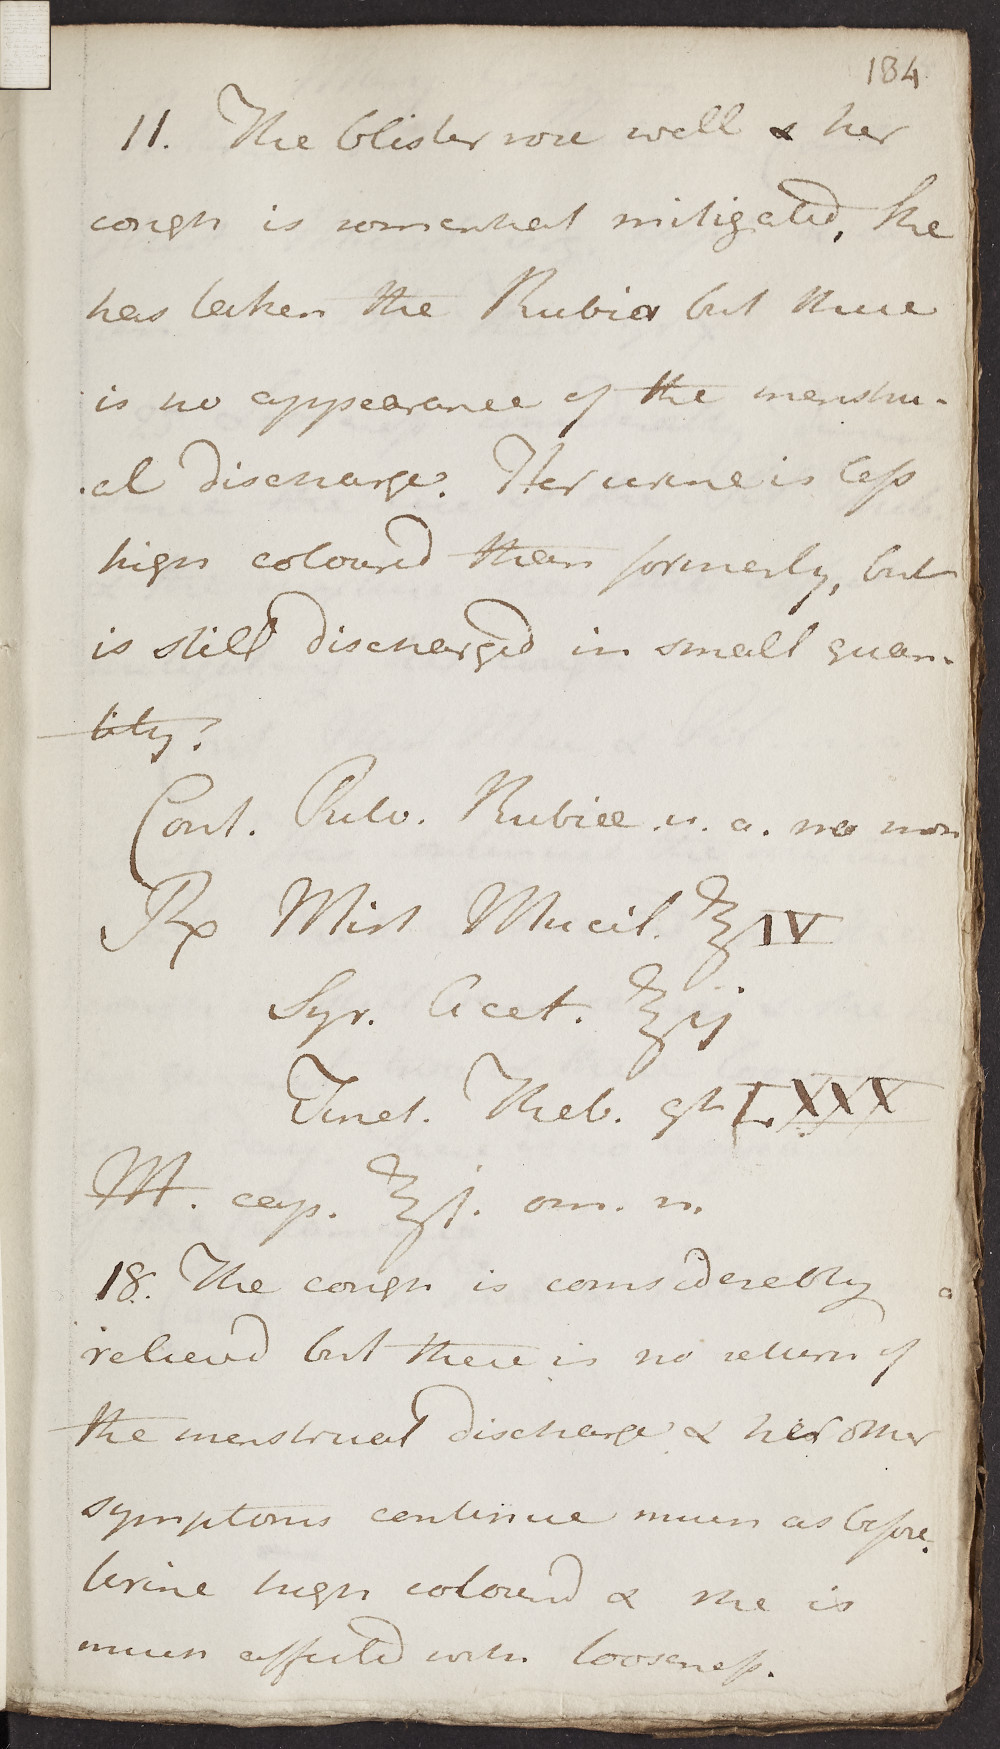 184
11. The blister rose well & her
cough is somewhat mitigated, She
has taken the Rubia but there
is no appearance of the menstru-
al discharge. Her urine is less
high coloured than formerly, but
is still discharged in small quan-
tity.
Cont. Pulv. Rubiæ. u. a.
Rx Mist Mucil. ℥IV
Syr. Acet. ℥ij
Tinct. Theb. gtt LXXX
M. cap. ℥j. om. n.
18. The cough is considerably
relieved but there is no return of
the menstrual discharge & her other
symptoms continue much as before.
Urine high coloured & she is
much affected with looseness.